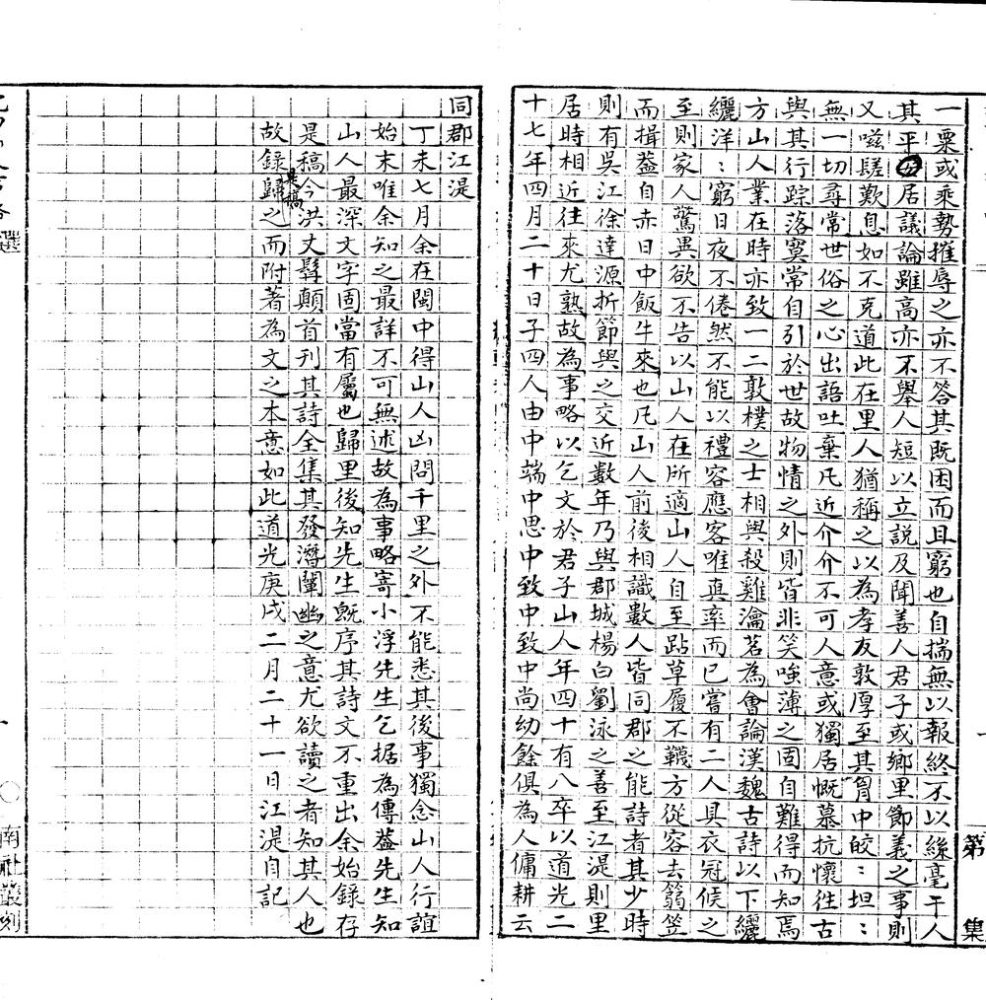 一粟或乘勢摧辱之亦不答其既困而且窮也自揣無以報終不以絲毫干人
其平居議論雖高亦不舉人短以立説及聞善人君子或鄉里節義之事則
又嗞嗟歎息如不克道此在里人猶稱之以為孝友敦厚至其胷中皎:坦:
無一切尋常世俗之心出語吐棄凡近介介不可人意或獨居慨慕抗懷往古
與其行踪落寞常自引於世故物情之外則皆非笑嗤薄之固自難得而知焉
方山人業在時亦致一二敦樸之士相與殺雞瀹茗為會論漢魏古詩以下纚
纚洋:窮日夜不倦然不能以禮容應客唯真率而已嘗有二人具衣冠候之
至則家人驚異欲不告以山人在所適山人自至跕草履不韈方從容去篛笠
而揖蓋自赤日中飯牛來也凡山人前後相識數人皆同郡之能詩者其少時
則有吳江徐達源折節與之交近數年乃與郡城楊白劉泳之善至江湜則里
居時相近往來尤熟故為事略以乞文於君子山人年四十有八卒以道光二
十七年四月二十日子四人由中端中思中致中致中尚幼餘俱為人傭耕云
第 集
同郡江湜
丁未七月余在閩中得山人凶問千里之外不能悉其後事獨念山人行誼
始末唯余知之最詳不可無述故為事略寄小浮先生乞据為傳蓋先生知
山人最深文字固當有屬也歸里後知先生既序其詩文不重出余始録存
是稿今洪丈髯顛首刊其詩全集其發潛闡幽之意尤欲讀之者知其人也
故録是稿歸之而附著為文之本意如此道光庚戌二月二十一日江湜自記
選 南社叢刻